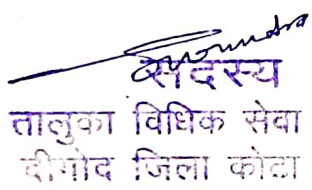 सदस्य
तालुका विधिक सेवा
दीगोद जिला कोटा